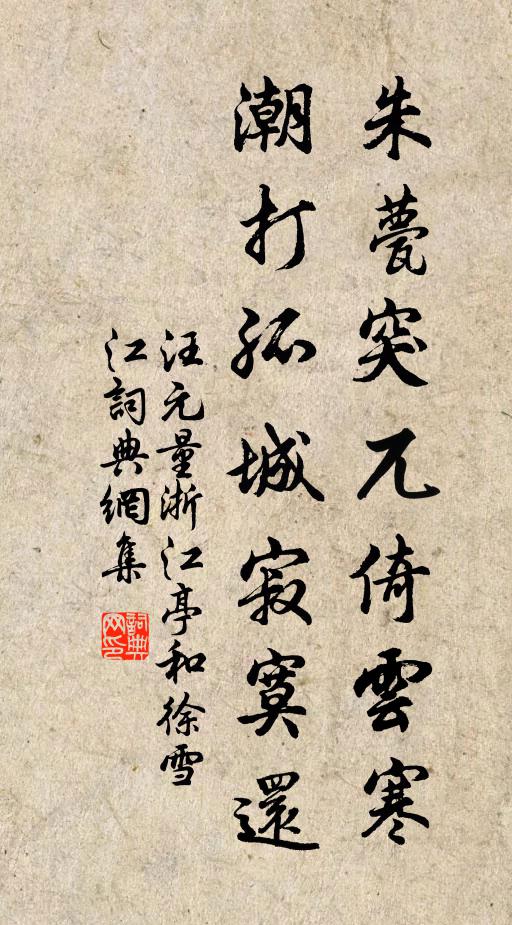 朱甍突兀倚雲寒
潮打孤城寂寞還
汪元量浙江亭和徐雪
江詞典網集
詞典网印